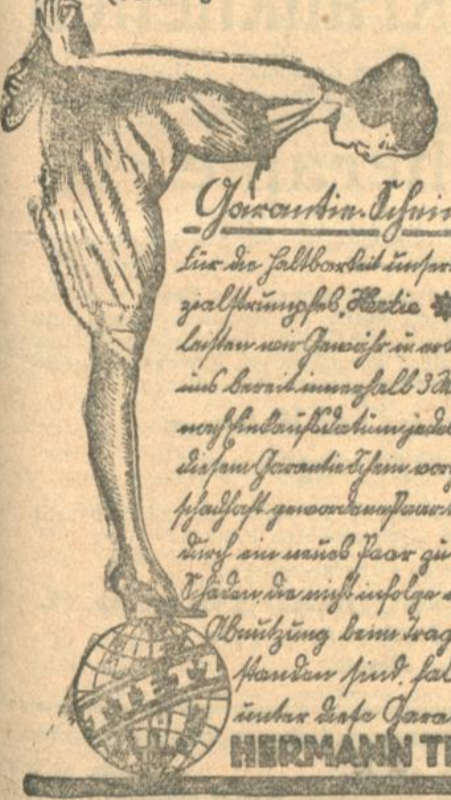 Garantie-Schein
Für die Haltbarkeit unser
zialstrumpfes "Hertie
leisten wir Gewähr u. erk
uns bereit innerhalb 3
nach Einkaufsdatum jede
diesem Garantie Schein vor
schadhaft gewordene Paar
durch ein neues Paar zu
Schäden, die nicht infolge
Abnützung beim Trag
standen sind, fal
unter diese Gara
TIETZ
HERMANN TI